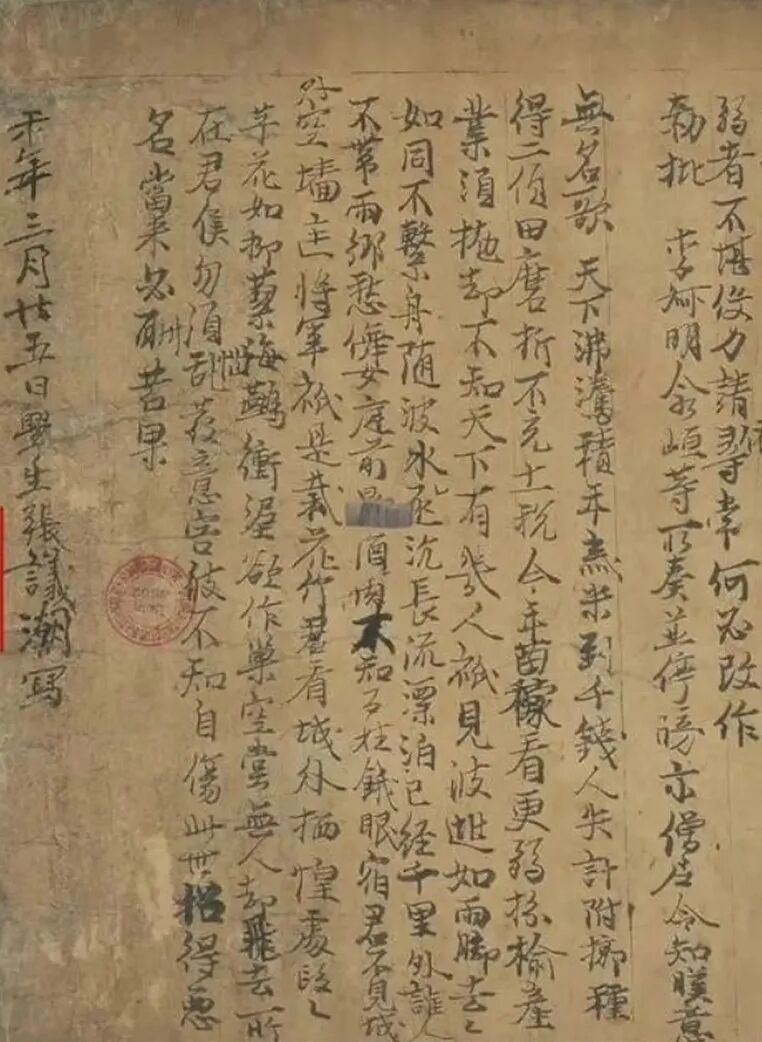 弱者不堪伇力請尋常何必改作
勑批 李 明 等所奏並停牓示僧居令知朕意
無名歌 天下沸騰積年 米到千錢人失計附 種
得二伯田磨折不充土税今年苗稼看更弱枌榆産
業須抛却不知天下有幾人衹見波逃如雨脚去〻
如同不繫舟随波水 長流漂泊已經千里外誰人
不帶兩鄉愁儛女庭前 酒肉不知百姓餓眠宿君不見城
外空墻匡將軍衹是栽花竹君看城外栖惶處段〻
茅花如柳絮海鷰銜泥欲作巢空堂無人却飛去所
在君侯勿須乱惱發意害彼不知自傷此世招得惡
名當来必酬苦果
未年三月廿五日學生張議潮寫